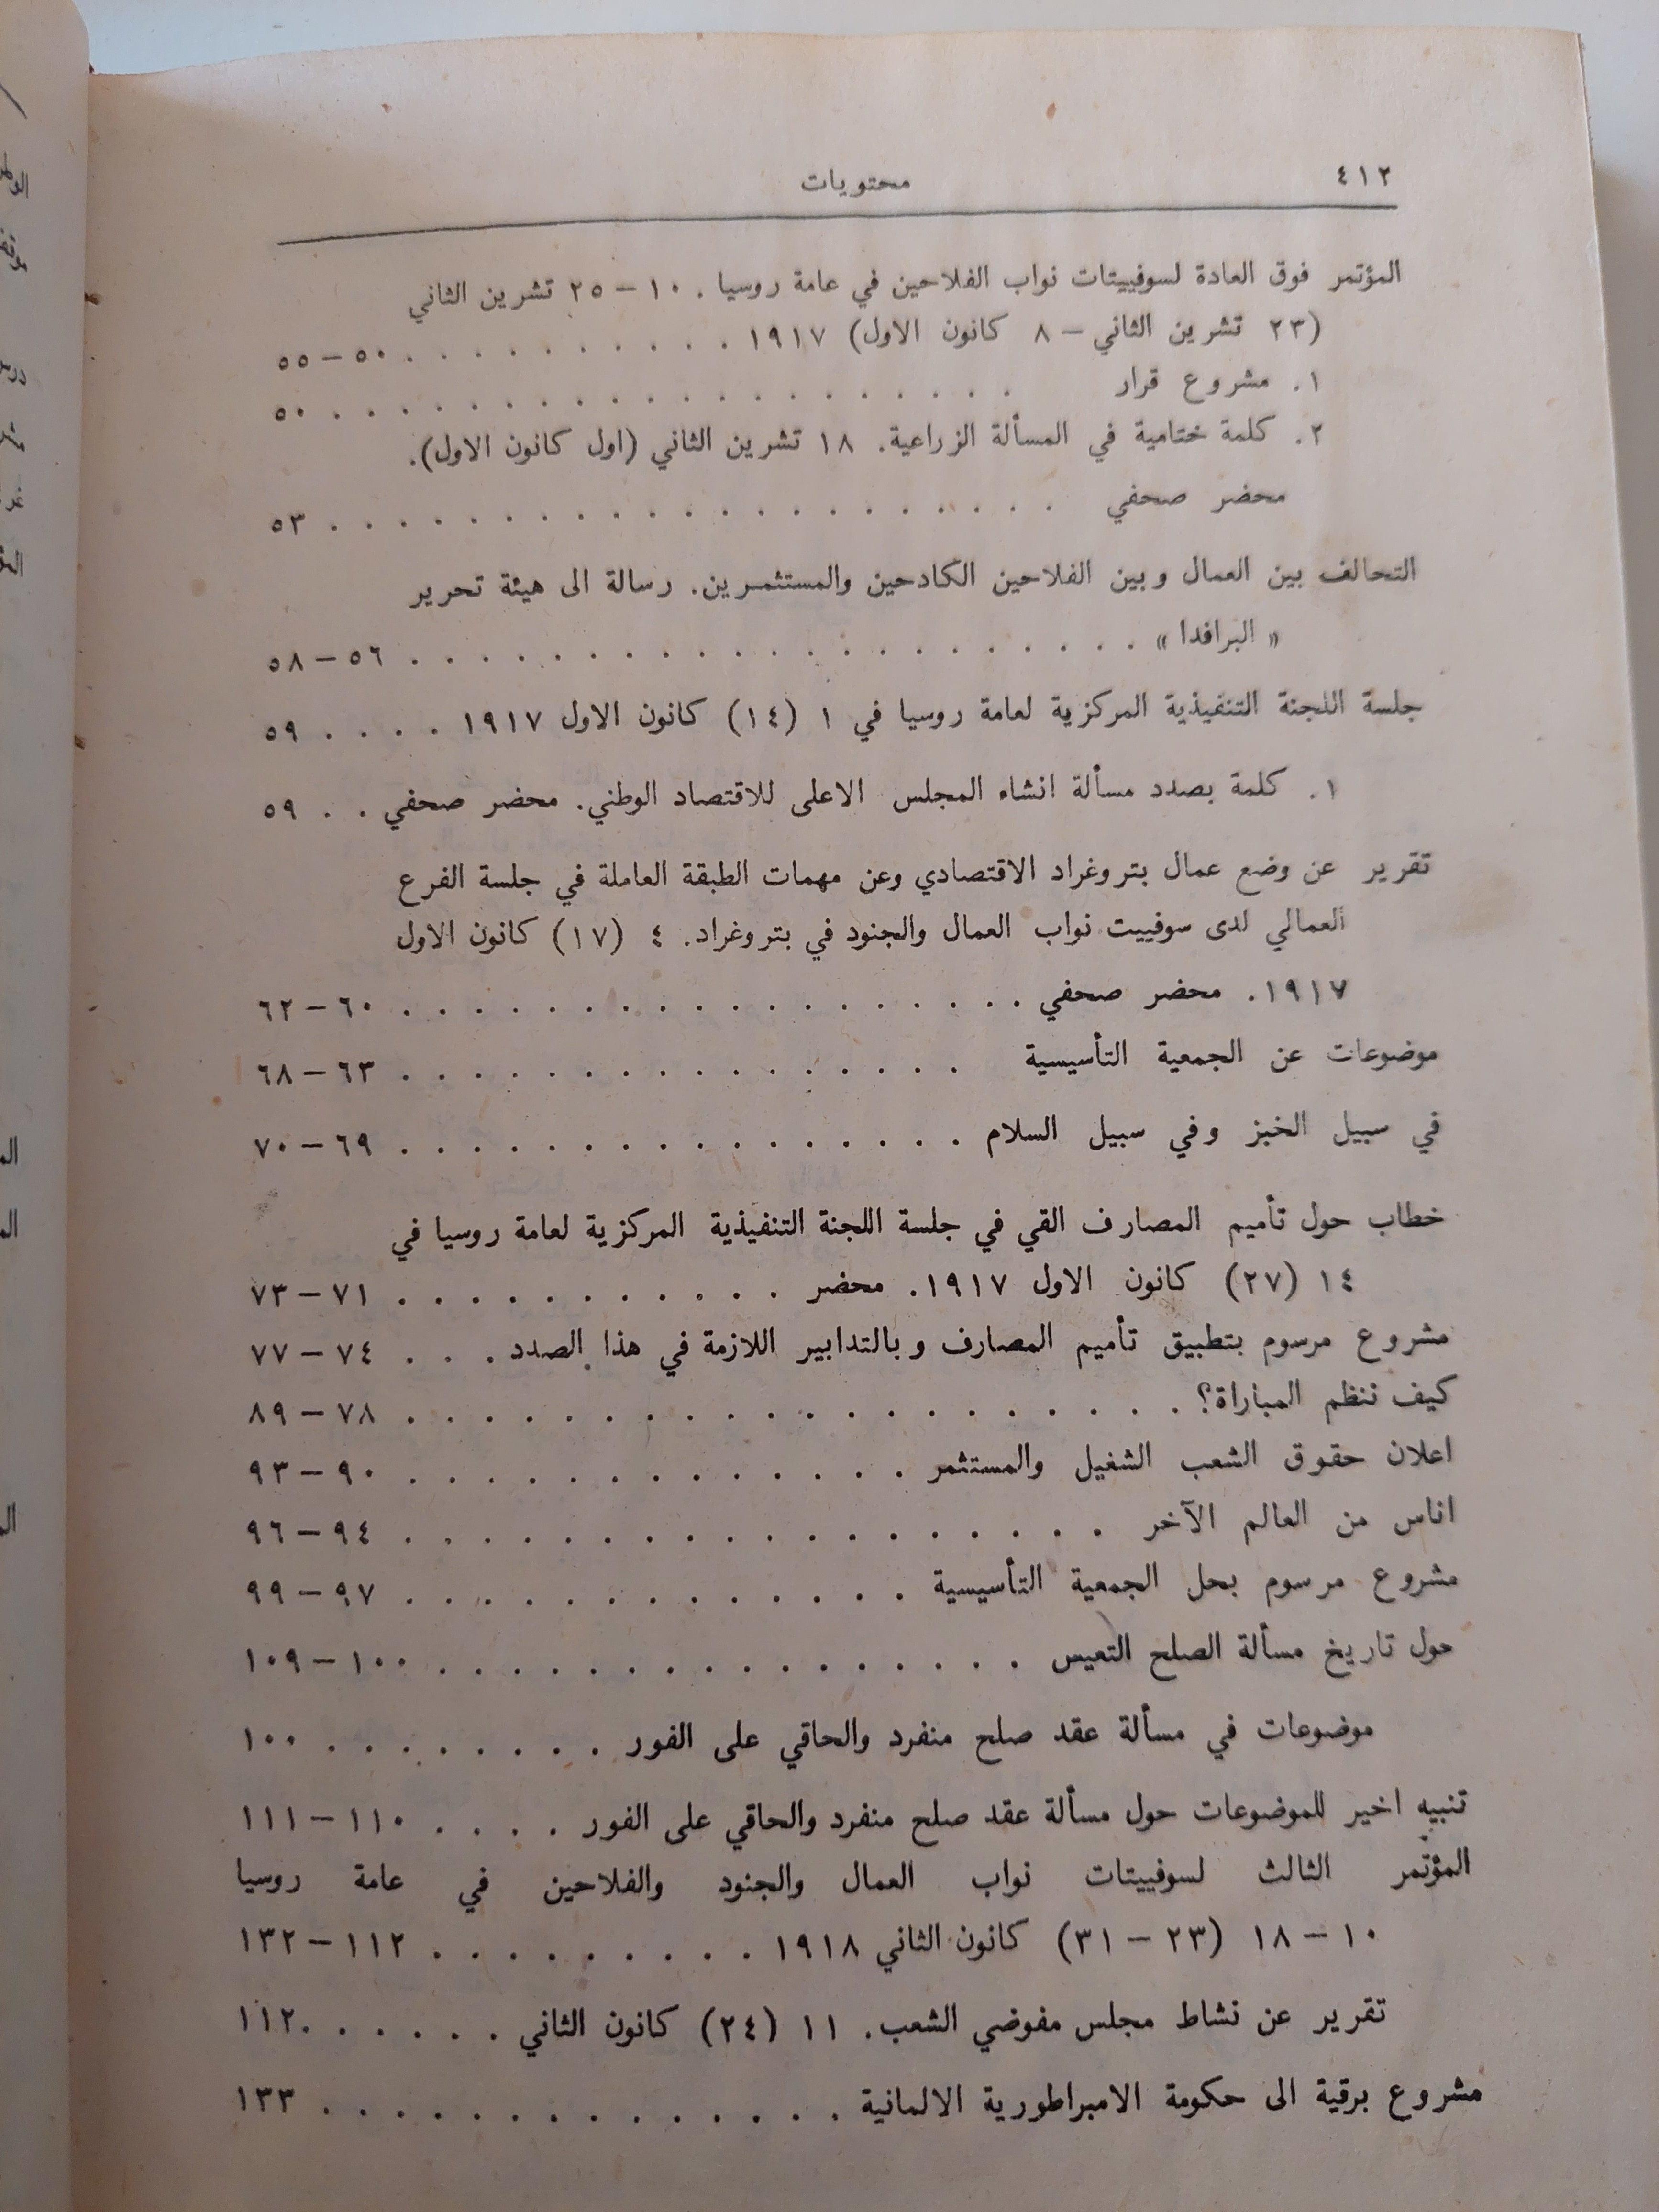 ٤١٢
محتويات
المؤتمر فوق العادة لسوفييتات نواب الفلاحين في عامة روسيا . ١٠ – ٢٥ تشرين الثاني
(٢٣ تشرين الثاني – ٨ كانون الاول) ١٩١٧ . . . . . . . . . . ٥٠ – ٥٥
١. مشروع قرار . . . . . . . . . . . . . . . . . . . . ٥٠
٢. كلمة ختامية في المسألة الزراعية. ١٨ تشرين الثاني (اول كانون الاول).
محضر صحفي . . . . . . . . . . . . . . . . . . . . . ٥٣
التحالف بين العمال وبين الفلاحين الكادحين والمستثمرين. رسالة الى هيئة تحرير
« البرافدا » . . . . . . . . . . . . . . . . . . . . . ٥٦ – ٥٨
جلسة اللجنة التنفيذية المركزية لعامة روسيا في ١ (١٤) كانون الاول ١٩١٧ . . . . ٥٩
١. كلمة بصدد مسألة انشاء المجلس الاعلى للاقتصاد الوطني. محضر صحفي . . ٥٩
تقرير عن وضع عمال بتروغراد الاقتصادي وعن مهمات الطبقة العاملة في جلسة الفرع
العمالي لدى سوفييت نواب العمال والجنود في بتروغراد. ٤ (١٧) كانون الاول
١٩١٧. محضر صحفي . . . . . . . . . . . . . . . . . . ٦٠ – ٦٢
موضوعات عن الجمعية التأسيسية . . . . . . . . . . . . . . . . ٦٣ – ٦٨
في سبيل الخبز وفي سبيل السلام . . . . . . . . . . . . . . . . ٦٩ – ٧٠
خطاب حول تأميم المصارف القي في جلسة اللجنة التنفيذية المركزية لعامة روسيا في
١٤ (٢٧) كانون الاول ١٩١٧. محضر . . . . . . . . . . . ٧١ – ٧٣
مشروع مرسوم بتطبيق تأميم المصارف وبالتدابير اللازمة في هذا الصدد . . . ٧٤ – ٧٧
كيف ننظم المباراة؟ . . . . . . . . . . . . . . . . . . . . ٧٨ – ٨٩
اعلان حقوق الشعب الشغيل والمستثمر . . . . . . . . . . . . . ٩٠ – ٩٣
اناس من العالم الآخر . . . . . . . . . . . . . . . . . . ٩٤ – ٩٦
مشروع مرسوم بحل الجمعية التأسيسية . . . . . . . . . . . . . ٩٧ – ٩٩
حول تاريخ مسألة الصلح التعيس . . . . . . . . . . . . . . . . ١٠٠ – ١٠٩
موضوعات في مسألة عقد صلح منفرد والحاقي على الفور . . . . . . . . ١٠٠
تنبيه اخير للموضوعات حول مسألة عقد صلح منفرد والحاقي على الفور . . . . ١١٠ – ١١١
المؤتمر الثالث لسوفييتات نواب العمال والجنود والفلاحين في عامة روسيا
١٠ – ١٨ (٢٣ – ٣١) كانون الثاني ١٩١٨ . . . . . . . . . ١١٢ – ١٣٢
تقرير عن نشاط مجلس مفوضي الشعب. ١١ (٢٤) كانون الثاني . . . . . . ١١٢
مشروع برقية الى حكومة الامبراطورية الالمانية . . . . . . . . . . . . . . ١٣٣